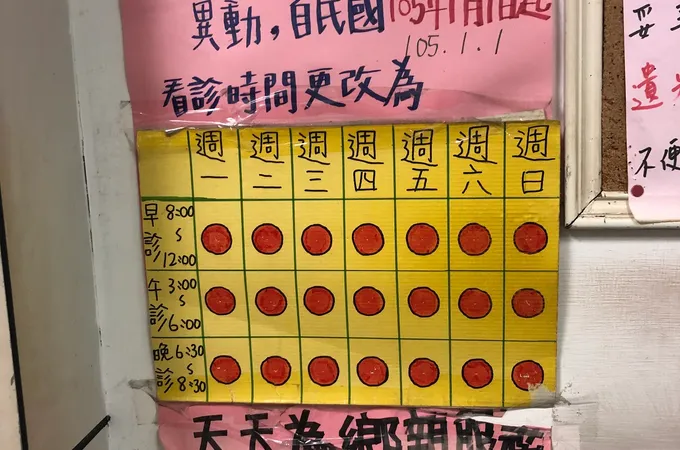 異動,自民國105年1月1日起
105.1.1
看診時間更改為
週一 週二 週三 週四 週五 週六 週日
早診 8:00 ~ 12:00
午診 3:00 ~ 6:00
晚診 6:30 ~ 8:30
天天為鄉親服務
遺
不便